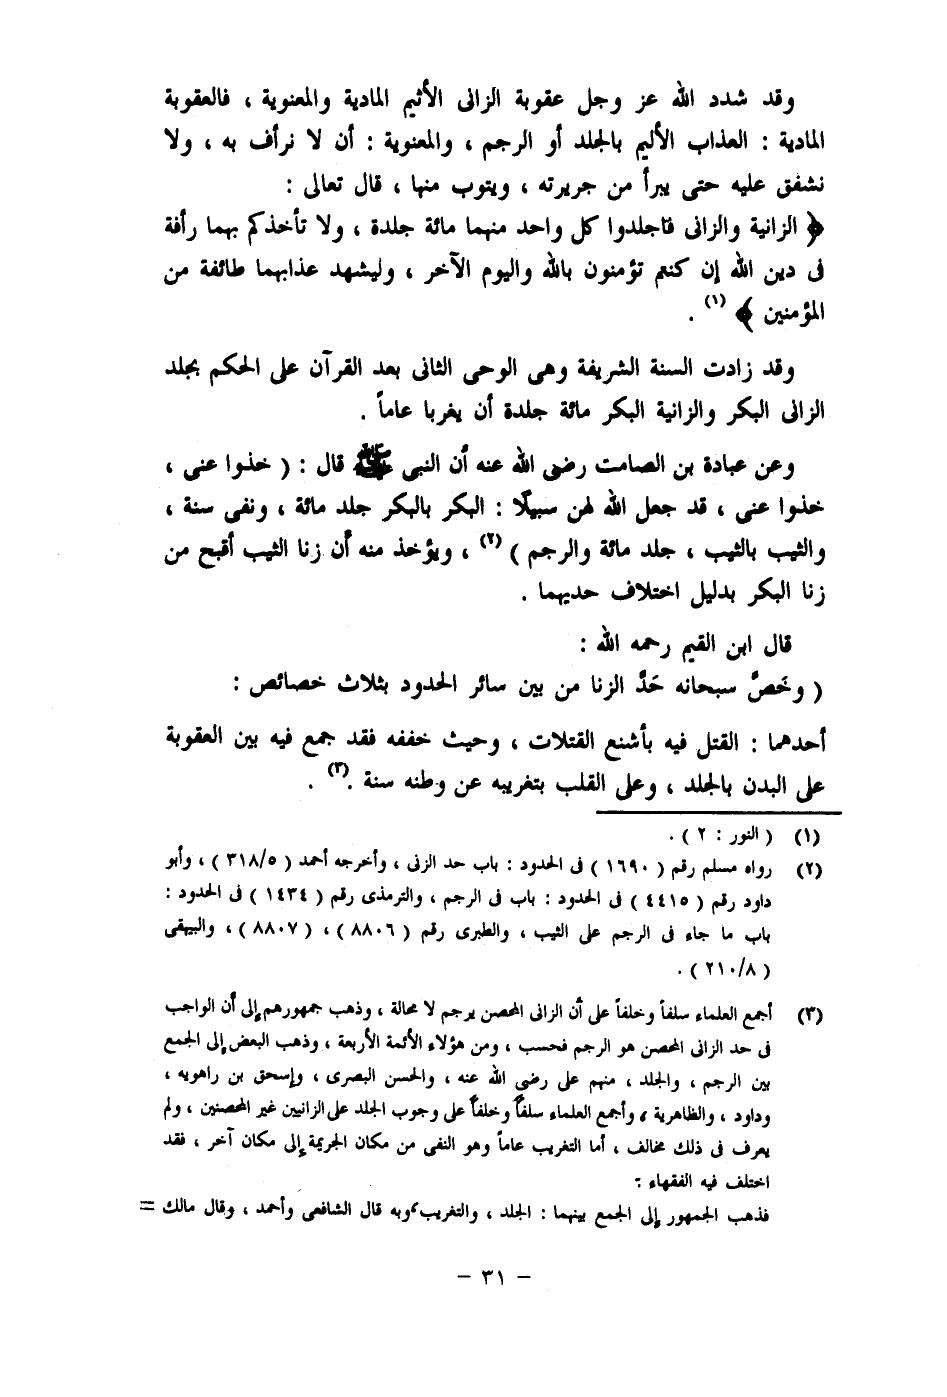 وقد شدد الله عز وجل عقوبة الزانى الأثيم المادية والمعنوية ، فالعقوبة
المادية : العذاب الأليم بالجلد أو الرجم ، والمعنوية : أن لا نرأف به ، ولا
نشفق عليه حتى يبرأ من جريرته ، ويتوب منها ، قال تعالى :
﴿ الزانية والزانى فاجلدوا كل واحد منهما مائة جلدة ، ولا تأخذكم بهما رأفة
فى دين الله إن كنتم تؤمنون بالله واليوم الآخر ، وليشهد عذابهما طائفة من
المؤمنين ﴾ (١) .
وقد زادت السنة الشريفة وهى الوحى الثانى بعد القرآن على الحكم بجلد
الزانى البكر والزانية البكر مائة جلدة أن يغربا عاماً .
وعن عبادة بن الصامت رضى الله عنه أن النبى ﷺ قال : ( خذوا عنى ،
خذوا عنى ، قد جعل الله لهن سبيلًا : البكر بالبكر جلد مائة ، ونفى سنة ،
والثيب بالثيب ، جلد مائة والرجم ) (٢) ، ويؤخذ منه أن زنا الثيب أقبح من
زنا البكر بدليل اختلاف حديهما .
قال ابن القيم رحمه الله :
( وخَصَّ سبحانه حَدَّ الزنا من بين سائر الحدود بثلاث خصائص :
أحدهما : القتل فيه بأشنع القتلات ، وحيث خففه فقد جمع فيه بين العقوبة
على البدن بالجلد ، وعلى القلب بتغريبه عن وطنه سنة .(٣) .
(١) ( النور : ٢ ) .
(٢) رواه مسلم رقم ( ١٦٩٠ ) فى الحدود : باب حد الزنى ، وأخرجه أحمد ( ٣١٨/٥ ) ، وأبو
داود رقم ( ٤٤١٥ ) فى الحدود : باب فى الرجم ، والترمذى رقم ( ١٤٣٤ ) فى الحدود :
باب ما جاء فى الرجم على الثيب ، والطبرى رقم ( ٨٨٠٦ ) ، ( ٨٨٠٧ ) ، والبيهقى
( ٢١٠/٨ ) .
(٣) أجمع العلماء سلفاً وخلفاً على أن الزانى المحصن يرجم لا محالة ، وذهب جمهورهم إلى أن الواجب
فى حد الزانى المحصن هو الرجم فحسب ، ومن هؤلاء الأئمة الأربعة ، وذهب البعض إلى الجمع
بين الرجم ، والجلد ، منهم على رضى الله عنه ، والحسن البصرى ، وإسحق بن راهويه ،
وداود ، والظاهرية ، وأجمع العلماء سلفاً وخلفاً على وجوب الجلد على الزانيين غير المحصنين ، ولم
يعرف فى ذلك مخالف ، أما التغريب عاماً وهو النفى من مكان الجريمة إلى مكان آخر ، فقد
اختلف فيه الفقهاء :
فذهب الجمهور إلى الجمع بينهما : الجلد ، والتغريب ، وبه قال الشافعى وأحمد ، وقال مالك =
– ٣١ –